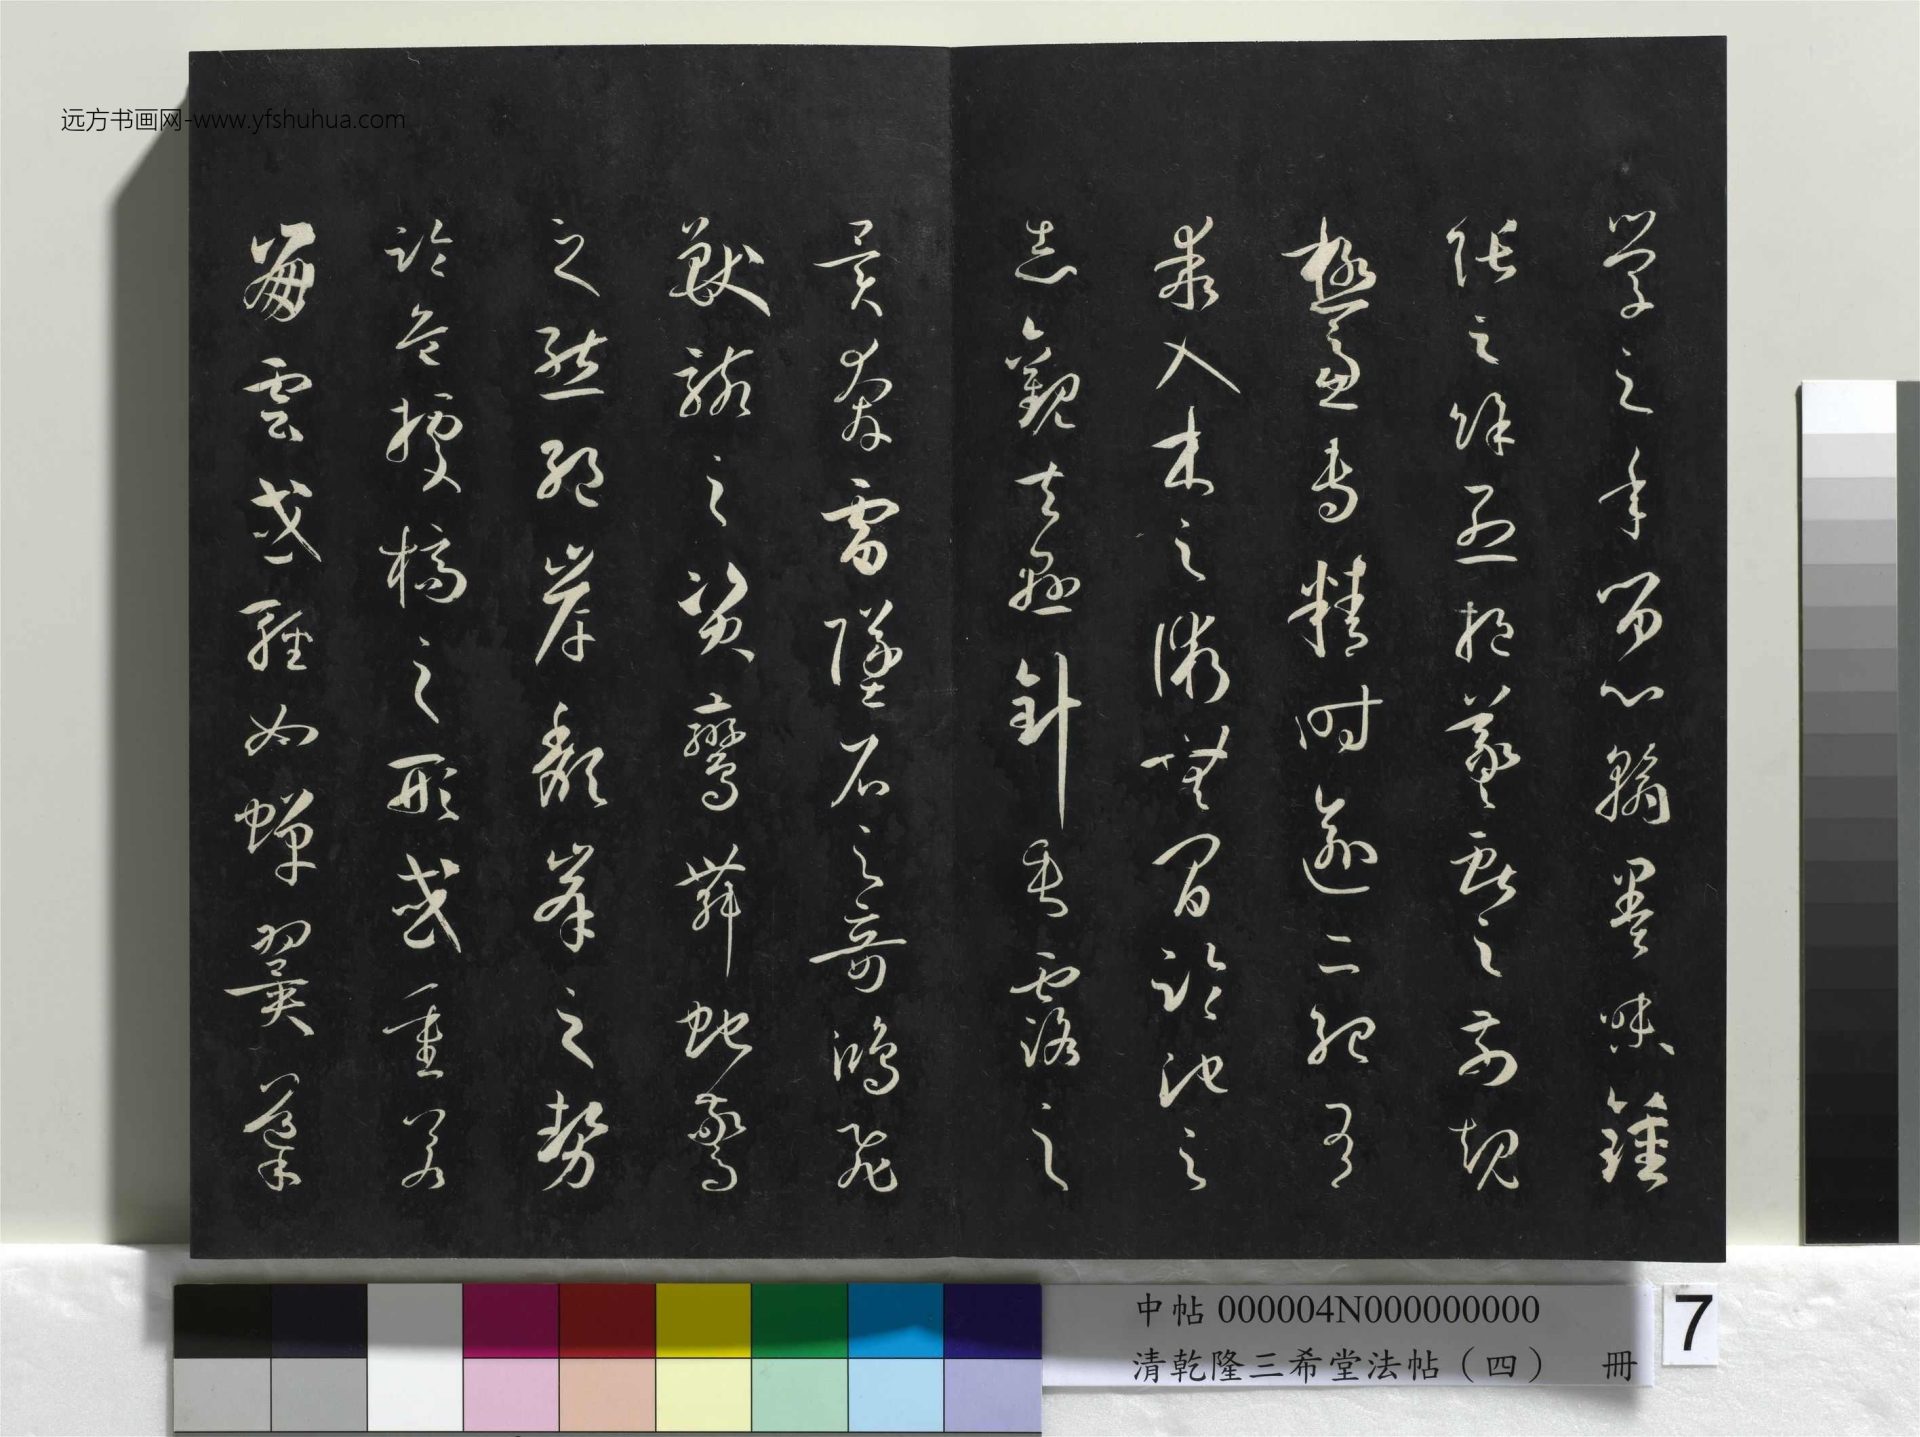 远方书画网-www.yfshuhua.com
學之年留心翰墨味鍾
張之餘烈挹羲獻之前規
極慮專精時逾二紀有
乖入木之術無間臨池之
志觀夫懸針垂露之
異奔雷墜石之奇鴻飛
獸駭之資鸞舞蛇驚
之態絕岸頹峯之勢
臨危據槁之形或重若
崩雲或輕如蟬翼導
中帖 000004N000000000
清乾隆三希堂法帖（四） 冊
7